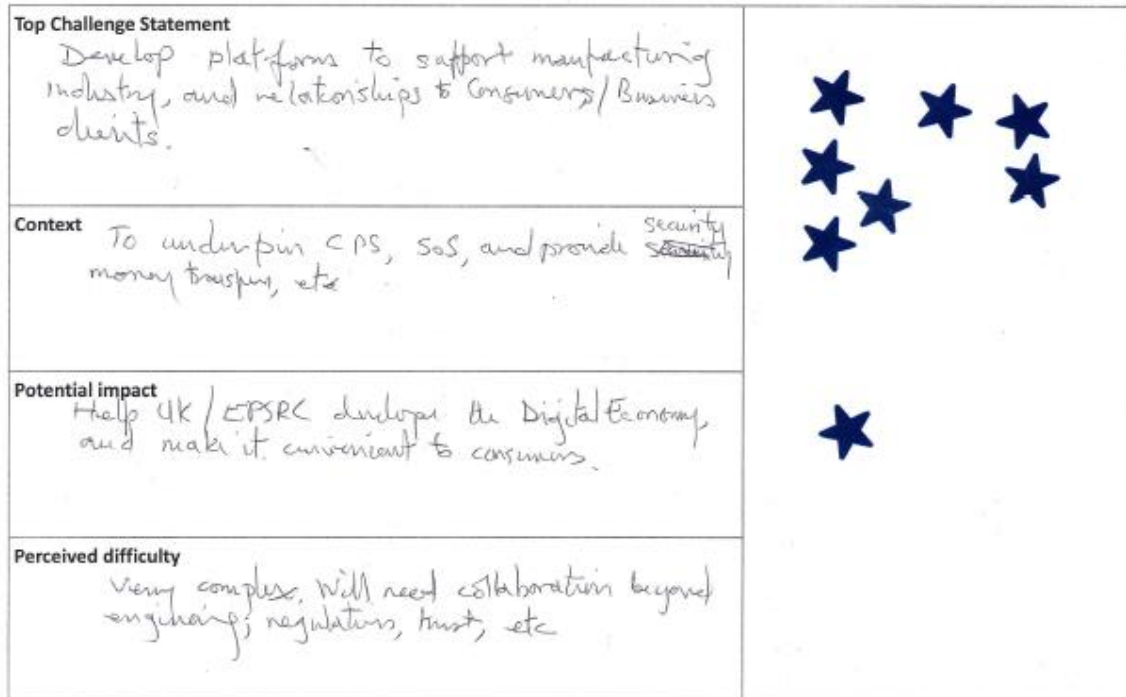 Top Challenge Statement
Develop platforms to support manufacturing
industry, and relationships to Consumers/Business
clients.
Context
To underpin CPS, SoS, and provide security
money transfers, etc
Potential impact
Help UK/EPSRC develope the Digital Economy,
and make it convenient to consumers.
Perceived difficulty
Very complex. Will need collaboration beyond
engineering; regulations, trust, etc